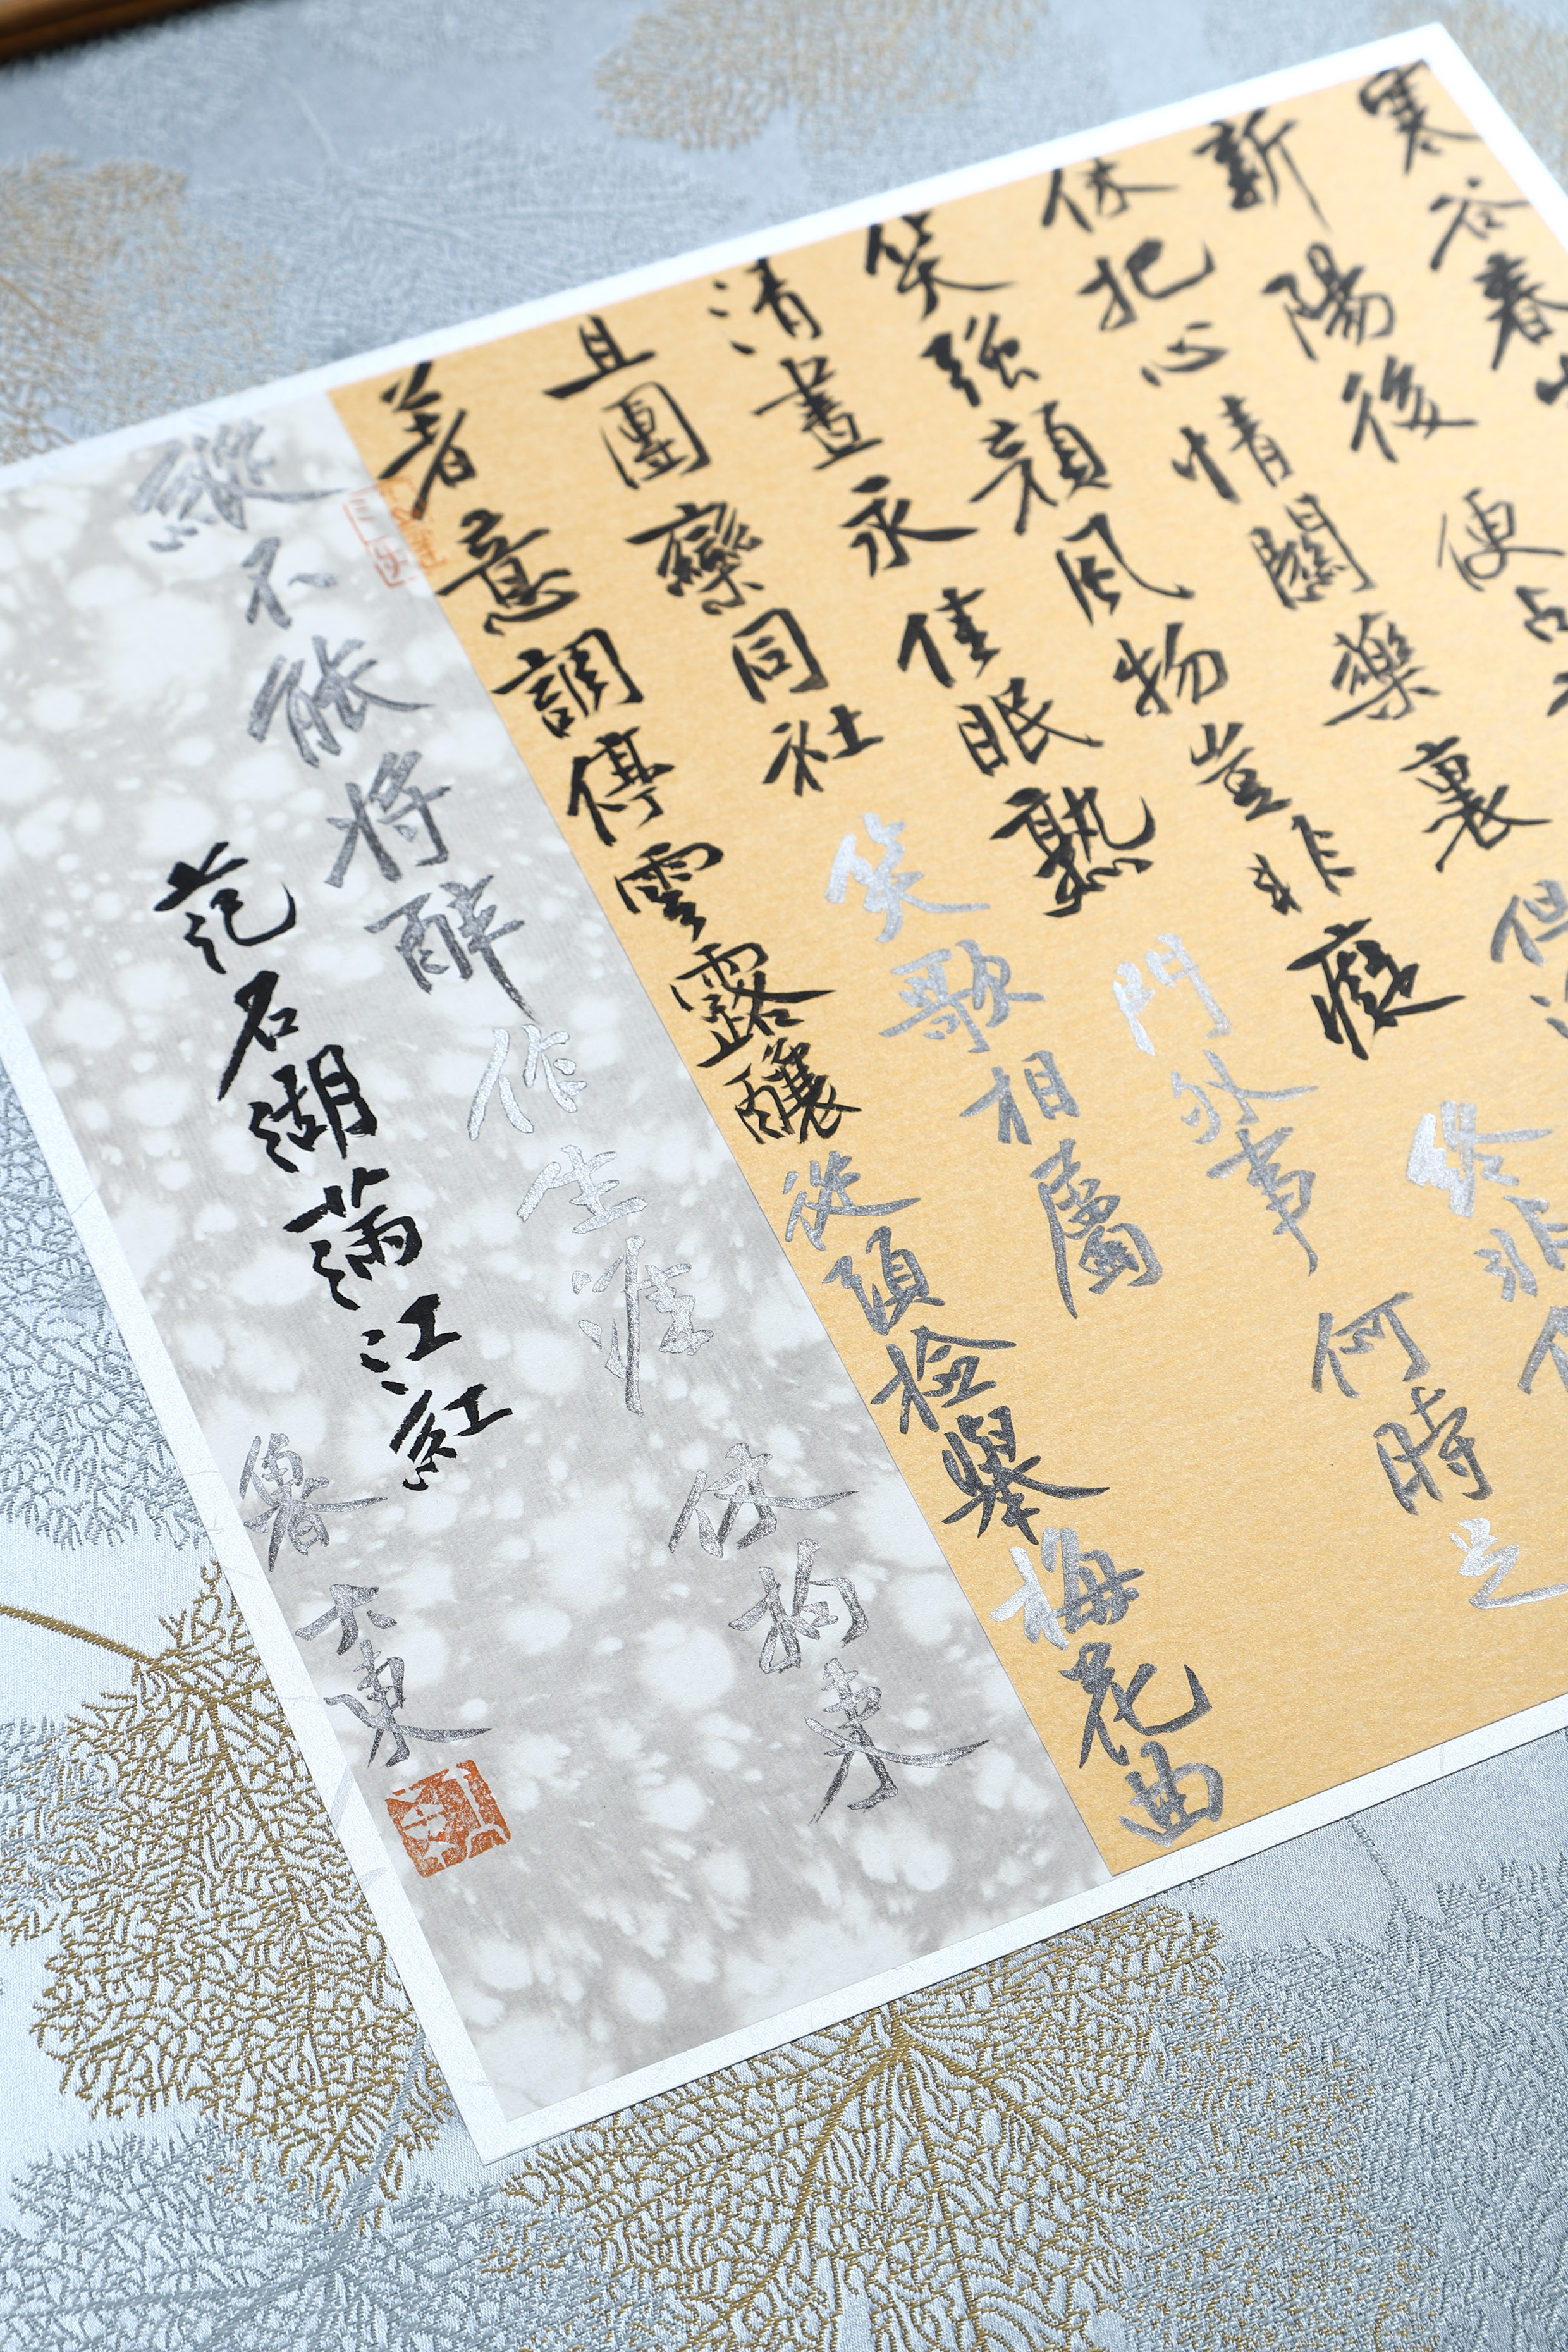 寒谷春
新陽後 便占
休把心情關藥裹 但
笑強顏風物豈非癡 終非
清晝永佳眠熟 門外事 何時足
且團欒同社 笑歌相屬
著意調停雲露釀從頭檢舉梅花曲
縱不能將醉作生涯 休拘束
范石湖滿江紅 魯大東